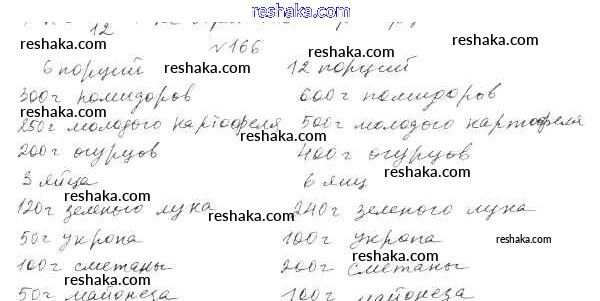 reshaka.com
12
№166
reshaka.com reshaka.com
6 порций 12 порций
reshaka.com
300г помидоров 600г помидоров
reshaka.com reshaka.com
250г молодого картофеля 500г молодого картофеля
reshaka.com
200г огурцов 400г огурцов
reshaka.com
3 яйца 6 яиц
reshaka.com reshaka.com
120г зеленого лука 240г зеленого лука
reshaka.com
50г укропа 100г укропа
reshaka.com
100г сметаны 200г сметаны
reshaka.com
50г майонеза 100г майонеза
reshaka.com